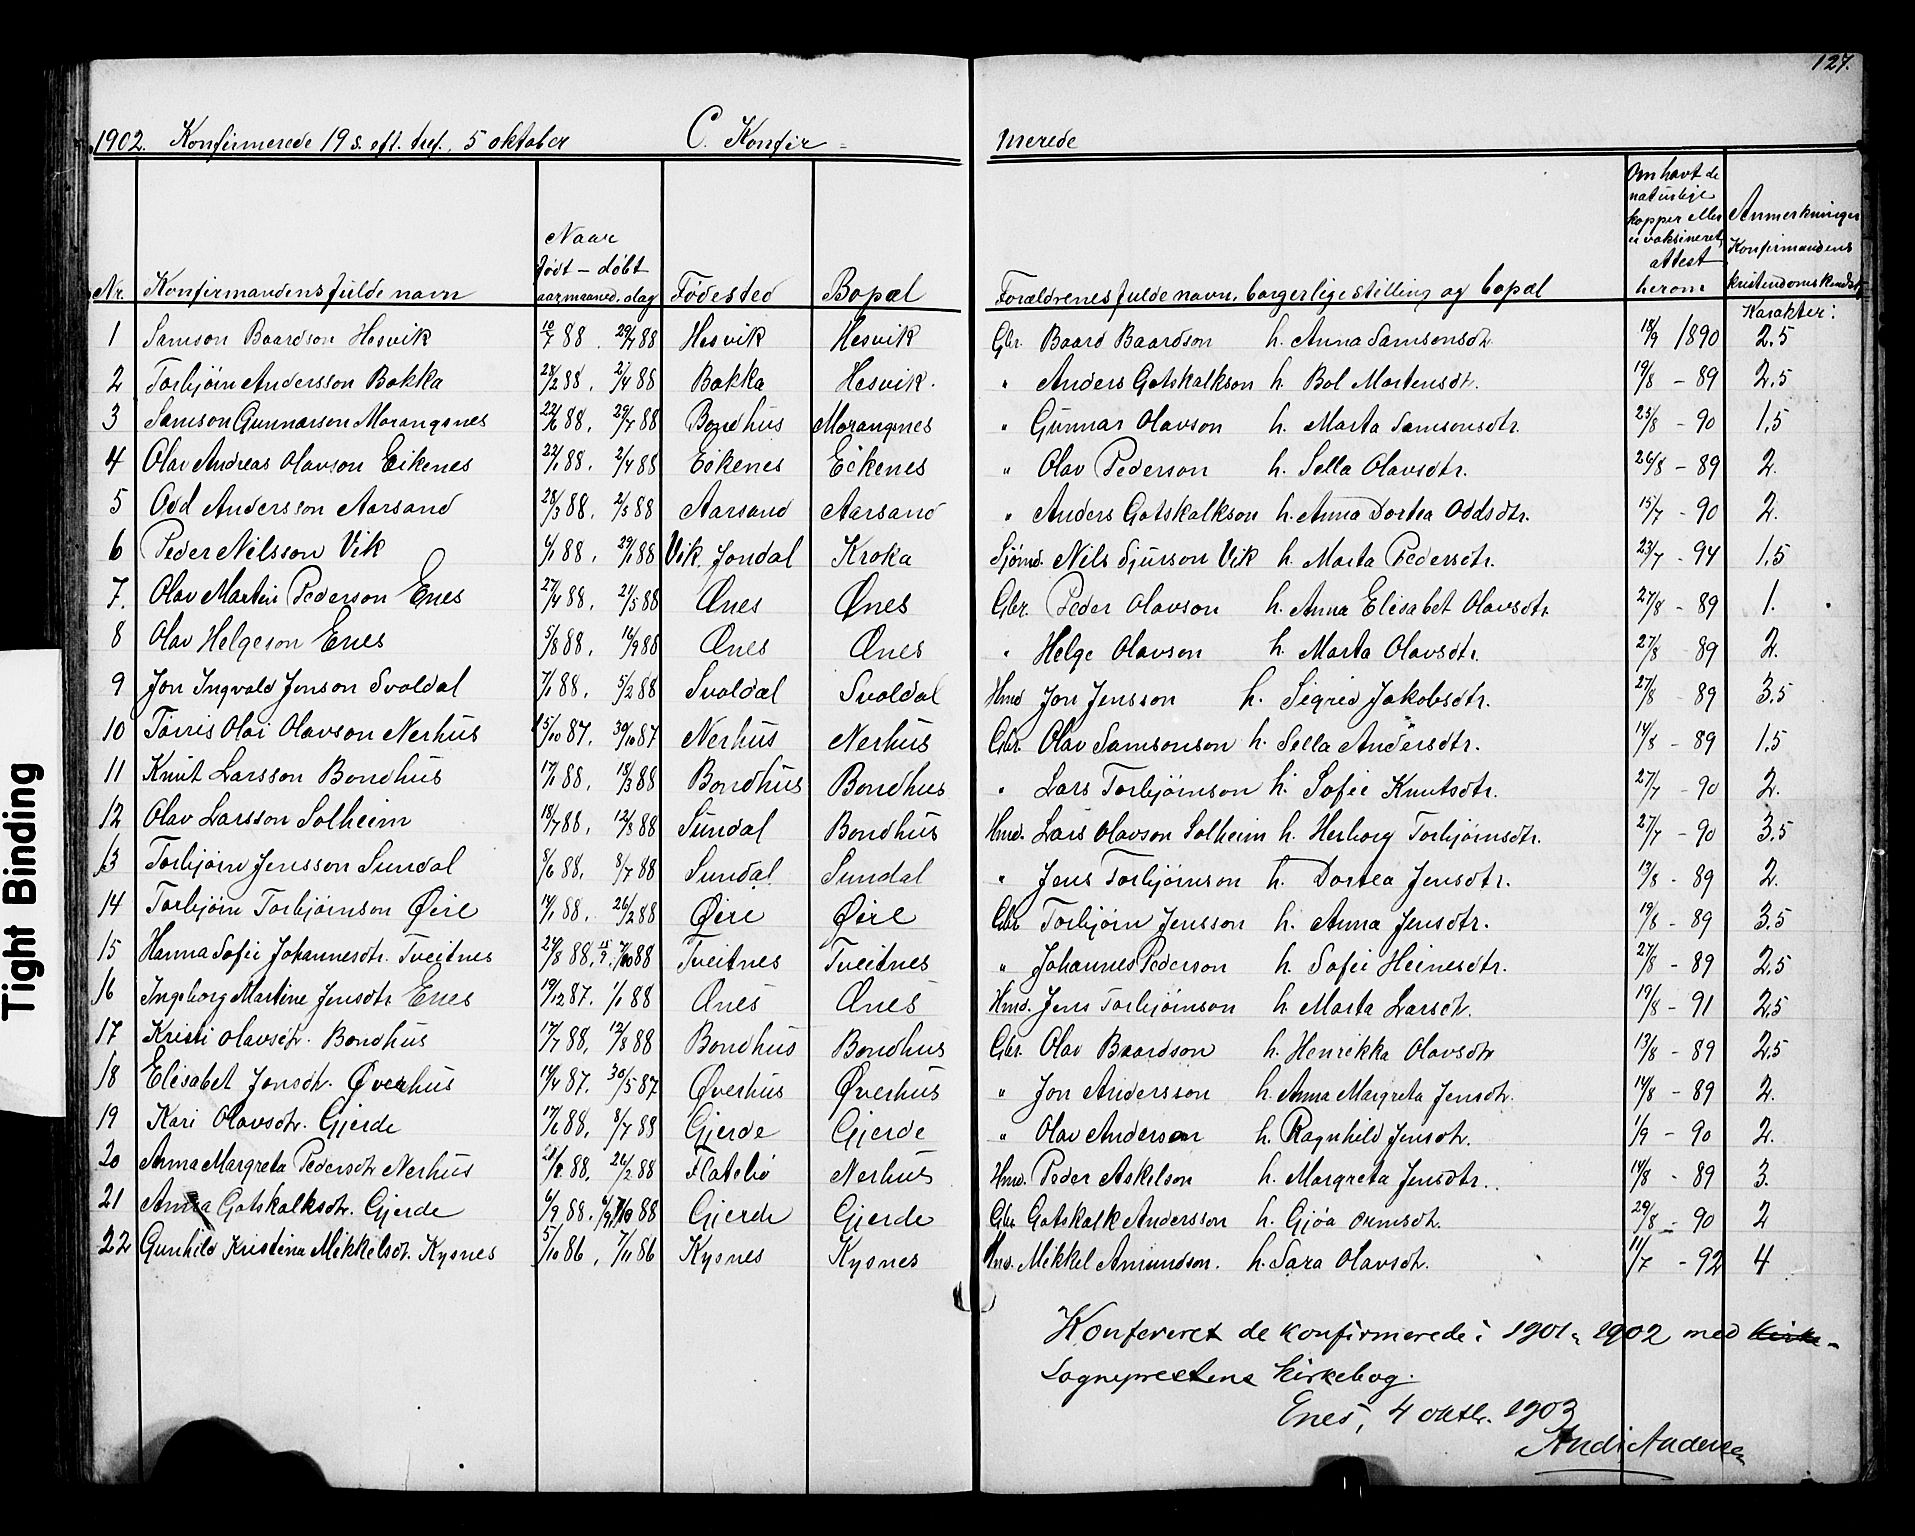 127.
1902. Konfirmerede 19 s. eft. tref., 5 oktober C. Konfir-
merede
Nr. Konfirmandens fulde navn Naar født – døbt aar maaned. dag Fødested Bopæl Forældrenes fulde navn, borgerlige stilling og bopæl Om havt de naturlige kopper eller er vaksineret, attest herom Anmerkninger Konfirmandens kristendomskundsk.
Karakter:
1 Samson Baardson Hesvik 10/7 88. 29/7 88 Hesvik Hesvik Gbr. Baard Baardson h. Anna Samsonsdtr. 18/9 1890 2.5
2 Torbjørn Andersson Bakka 28/2 88, 2/4 88 Bakka Hesvik. " Anders Gotskalkson h. Bol Martensdt. 19/8 - 89 2.5
3 Samson Gunnarson Morangsnes 22/6 88, 29/7 88 Bondhus Morangsnes " Gunnar Olavson h. Marta Samsonsdtr. 25/8 - 90 1,5
4 Olav Andreas Olavson Eikenes 22/1 88. 2/4 88 Eikenes Eikenes " Olav Pederson h. Sella Olavsdtr. 26/8 - 89 2.
5 Odd Andersson Aarsand 28/3 88, 2/5 88 Aarsand Aarsand " Anders Gotskalkson h. Anna Dortea Oddsdtr. 15/7 - 90 2.
6 Peder Nilsson Vik 6/1 88, 29/1 88 Vik Jondal Kroka Sjømd. Nils Sjurson Vik h. Marta Pedersdtr. 23/7 - 94 1,5
7. Olav Martin Pederson Enes 27/4 88, 21/5 88 Ænes Ænes Gbr. Peder Olavson h. Anna Elisabet Olavsdtr 27/8 - 89 1.
8 Olav Helgeson Enes 5/8 88, 16/9 88 Ænes Ænes " Helge Olavson h. Marta Olavsdtr. 27/8 89 2.
9 Jon Ingvald Jonson Svoldal 7/1 88, 5/2 88 Svoldal Svoldal Hmd Jon Jensson h. Sigrid Jakobsdtr. 27/8 - 89 3.5
10 Torris Olai Olavson Nerhus 15/10 87, 30/10 87 Nerhus Nerhus Gbr. Olav Samsonson h. Sella Andersdtr. 14/8 - 89 1.5
11 Knut Larsson Bondhus 17/1 88, 18/3 88 Bondhus Bondhus " Lars Torbjørnson h. Sofie Knutsdtr. 27/7 - 90 2.
12 Olav Larsson Solheim 18/7 88, 12/8 88 Sundal Bondhus Hmd. Lars Olavson Solheim h. Herborg Torbjørnsdtr. 27/7 - 90 3.5
13 Torbjørn Jensson Sundal 8/6 88, 8/7 88 Sundal Sundal " Jens Torbjørnson h. Dortea Jensdtr. 13/8 - 89 2.
14 Torbjørn Torbjørnson Øire 14/1 88. 26/2 88 Øire Øire Gbr Torbjørn Jensson h. Anna Jensdtr. 19/8 - 89 3.5
15 Hanna Sofie Johannesdtr. Tveitnes 24/8 88, 7/10 88 Tveitnes Tveitnes " Johannes Pederson h. Sofie Heinesdtr. 27/8 - 89 2.5
16 Ingeborg Martine Jensdtr Enes 19/12 87. 1/1 88 Ænes Ænes Hmd. Jens Torbjørnson h. Marta Larsdt. 19/8 - 91 2,5
17 Kristi Olavsdtr. Bondhus 17/7 88, 12/8 88 Bondhus Bondhus Gbr. Olav Baardson h. Henrikka Olavsdtr 13/8 - 89 2,5
18 Elisabet Jonsdt. Øverhus 14/4 87. 30/5 87 Øverhus Øverhus " Jon Andersson h. Anna Margreta Jensdtr. 14/8 - 89 2.
19 Kari Olavsdtr. Gjerde 17/6 88, 8/7 88 Gjerde Gjerde " Olav Anderson h. Ragnhild Jensdtr. 1/9 - 90 2.
20 Anna Margreta Pedersdtr Nerhus 88, 26/2 88 Flatebø Nerhus Hmd. Peder Askelson h. Margreta Jensdtr. 14/8 - 89 3.
21 Anna Gotskalksdtr. Gjerde 6/9 88, 7/10 88 Gjerde Gjerde Gbr Gotskalk Andersson h. Gjøa Ormsdt. 29/8 - 90 2
22 Gunhild Kristina Mikkelsdt. Kysnes 5/10 86, 7/11 86 Kysnes Kysnes Hmd. Mikkel Amundson. h. Sara Olavsdtr. 11/7 - 92 4
Konfereret de konfirmerede i 1901 1902 med kirke-
sogneprestens kirkebog.
Enes, 4 oktbr. 1903
And. Andersen
Tight Binding